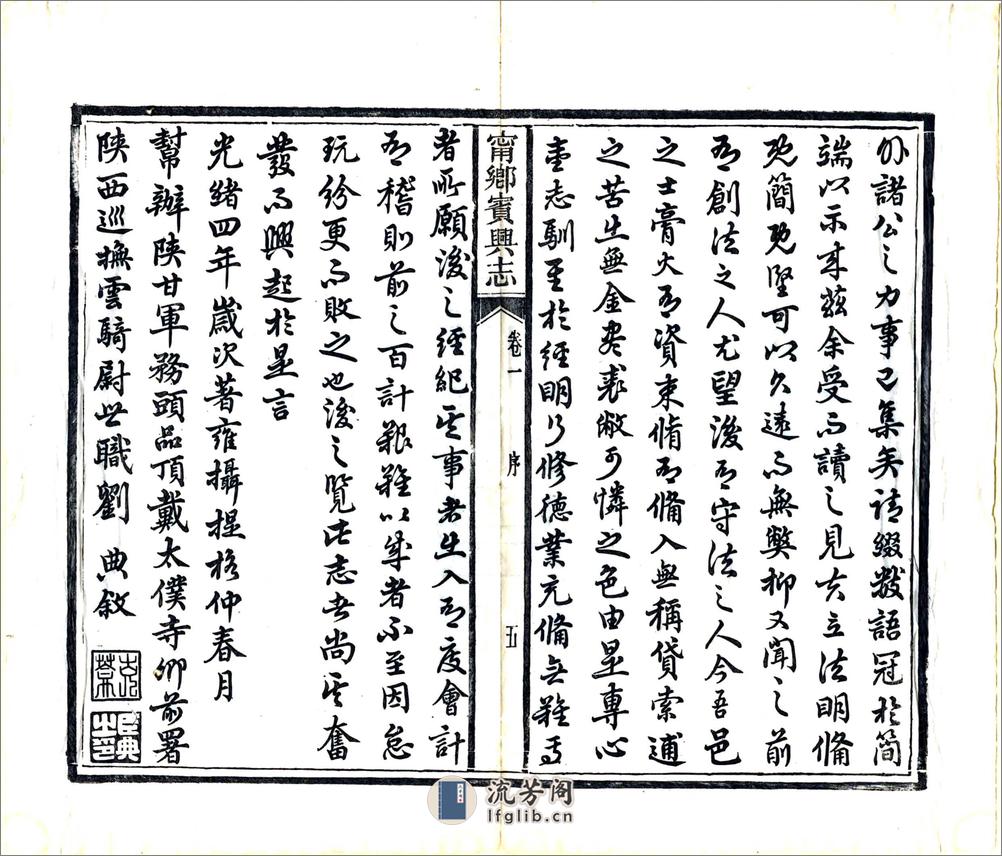 外諸公之力事已集矣請綴數語冠於簡
端以示來茲余受而讀之見夫立法明備
既簡既堅可以久遠而無弊抑又聞之前
有創法之人尤望後有守法之人今吾邑
之士膏火有資束脩有備入無稱貸索逋
之苦出無金盡裘敝可憐之色由是專心
壹志馴至於經明行修德業充備無難事
甯鄉賓興志
卷一
序
五
者所願後之經紀其事者出入有度會計
有稽則前之百計艱難以成者不至因怠
玩紛更而敗之也後之覽此志者尚其奮
發而興起於是言
光緒四年歲次著雍攝提格仲春月
幫辦陝甘軍務頭品頂戴太僕寺卿前署
陝西巡撫雲騎尉世職劉 典敘
臣典之印
流芳阁
lfglib.cn